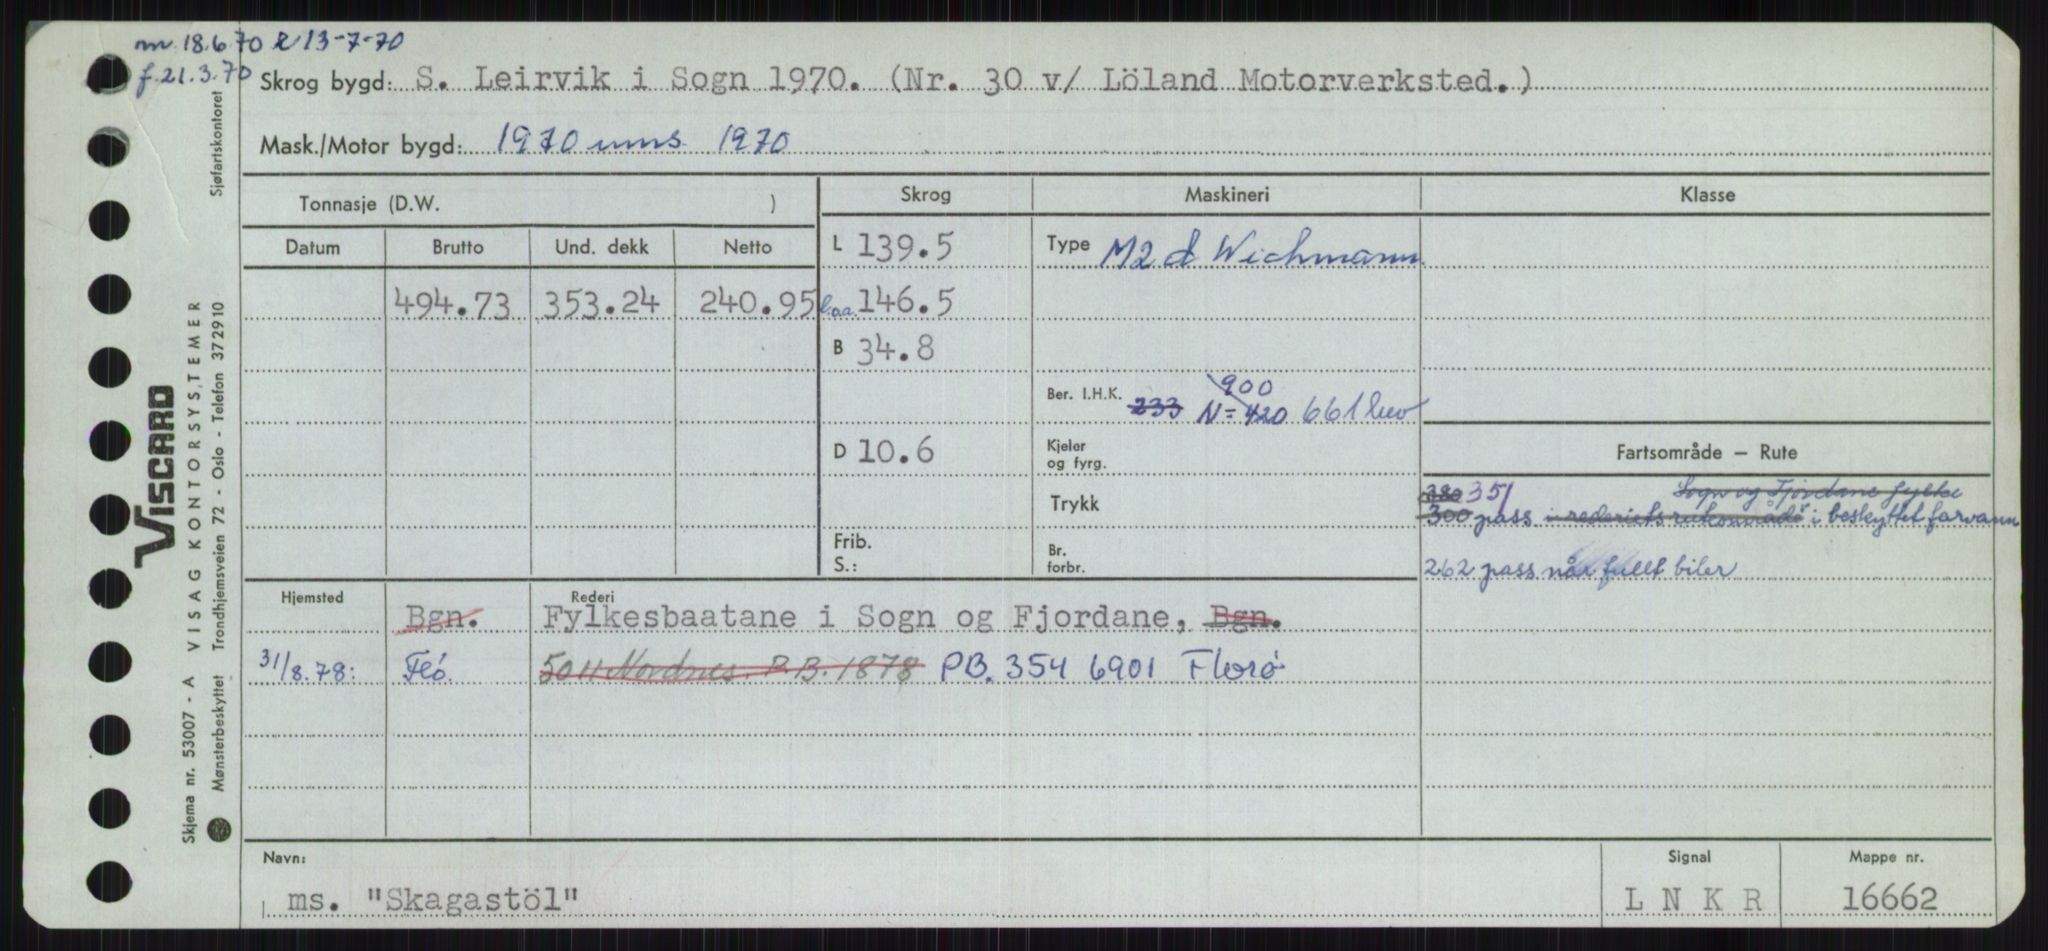 m. 18.6.70 R 13-7-70
f. 21.3.70
Skrog bygd: S. Leirvik i Sogn 1970. (Nr. 30 v/ Löland Motorverksted.)
Mask./Motor bygd: 1970 1970
Tonnasje (D.W. )
Skrog
Maskineri
Klasse
Datum Brutto Und. dekk Netto
494.73 353.24 240.95
L 139.5
l.o.a. 146.5
B 34.8
D 10.6
Frib.
S.:
Type M2 d Wichmann
Ber. I.H.K. 233 900
N = 420 661
Kjeler
og fyrg.
Trykk
Br.
forbr.
Fartsområde – Rute
380 351 Sogn og Fjordane fylke
300 pass i rederiets ruteområde i beskyttet farvann
262 pass når fullt biler
Hjemsted Rederi
Bgn. Fylkesbaatane i Sogn og Fjordane, Bgn.
31/8.78: Flö 5011 Nordnes. P.B. 1878 PB. 354 6901 Florø
Navn:
ms. "Skagastöl"
Signal
L N K R
Mappe nr.
16662
Sjøfartskontoret
VISCARD
VISAG KONTORSYSTEMER
Trondhjemsveien 72 - Oslo - Telefon 372910
Skjema nr. 53007 - A
Mønsterbeskyttet